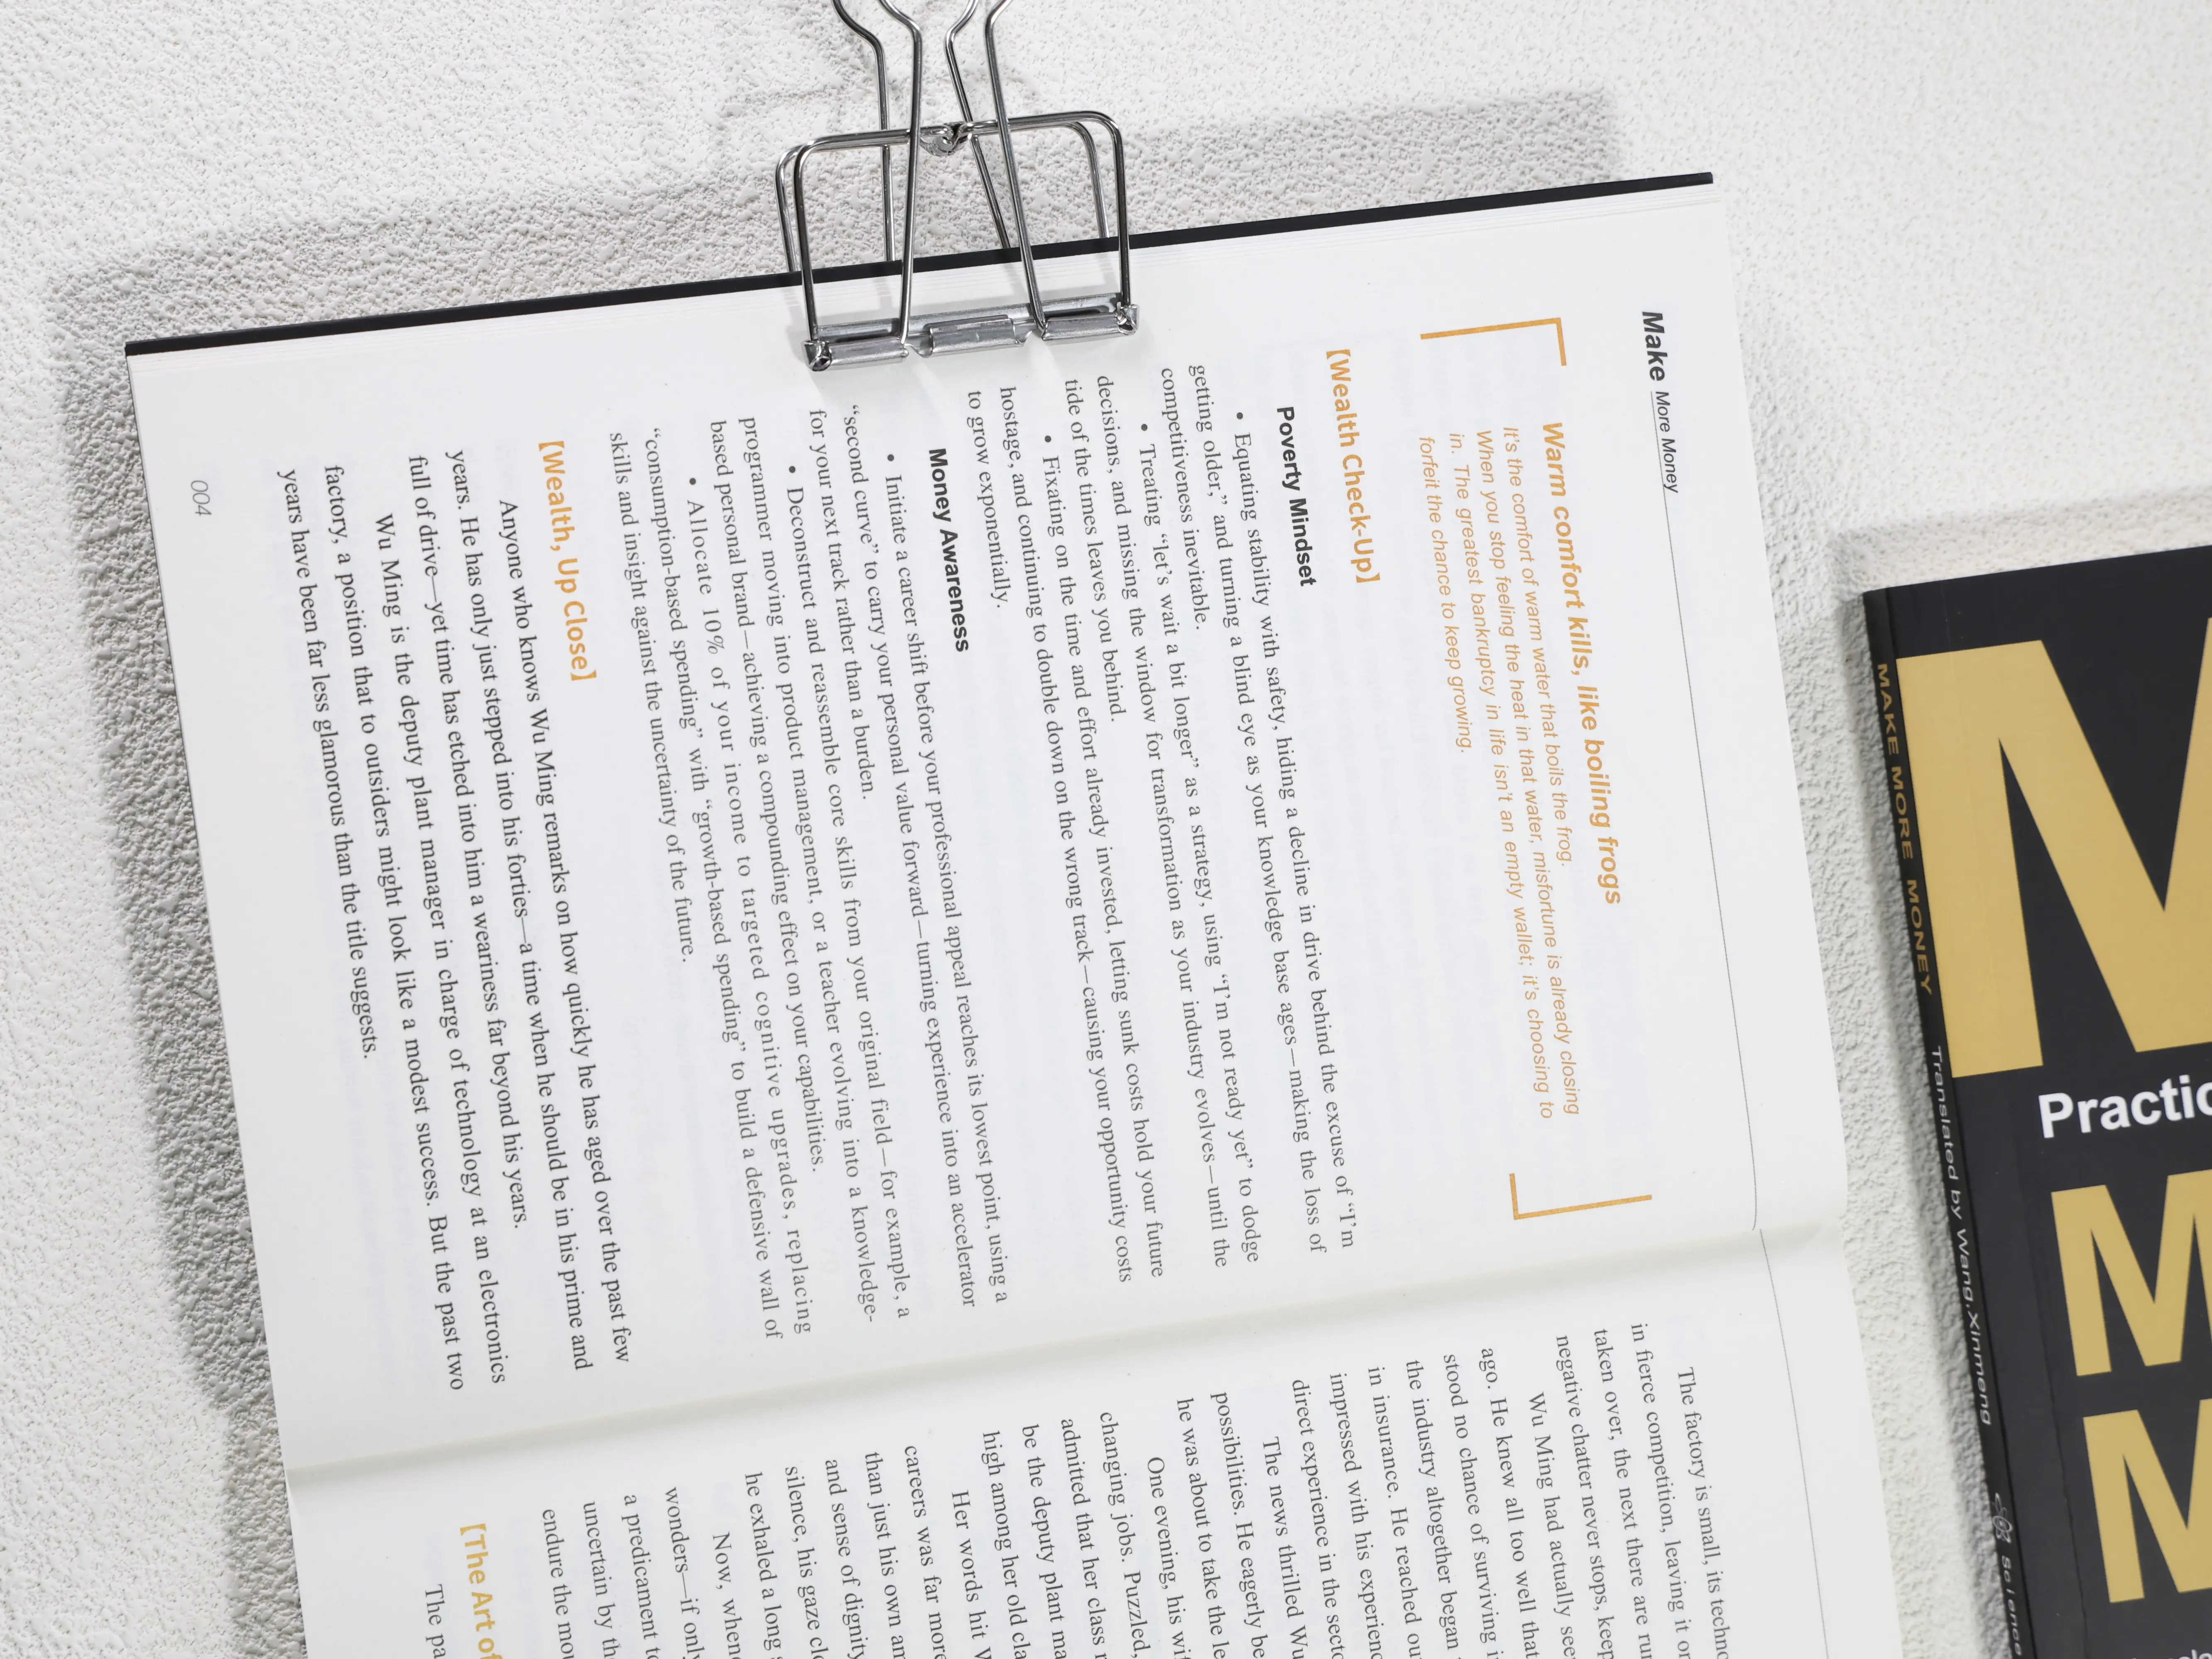 Make More Money
Warm comfort kills, like boiling frogs
It's the comfort of warm water that boils the frog.
When you stop feeling the heat in that water, misfortune is already closing
in. The greatest bankruptcy in life isn't an empty wallet; it's choosing to
forfeit the chance to keep growing.
【Wealth Check-Up】
Poverty Mindset
• Equating stability with safety, hiding a decline in drive behind the excuse of “I'm
getting older,” and turning a blind eye as your knowledge base ages—making the loss of
competitiveness inevitable.
• Treating “let's wait a bit longer” as a strategy, using “I'm not ready yet” to dodge
decisions, and missing the window for transformation as your industry evolves—until the
tide of the times leaves you behind.
• Fixating on the time and effort already invested, letting sunk costs hold your future
hostage, and continuing to double down on the wrong track—causing your opportunity costs
to grow exponentially.
Money Awareness
• Initiate a career shift before your professional appeal reaches its lowest point, using a
“second curve” to carry your personal value forward—turning experience into an accelerator
for your next track rather than a burden.
• Deconstruct and reassemble core skills from your original field—for example, a
programmer moving into product management, or a teacher evolving into a knowledge-
based personal brand—achieving a compounding effect on your capabilities.
• Allocate 10% of your income to targeted cognitive upgrades, replacing
“consumption-based spending” with “growth-based spending” to build a defensive wall of
skills and insight against the uncertainty of the future.
【Wealth, Up Close】
Anyone who knows Wu Ming remarks on how quickly he has aged over the past few
years. He has only just stepped into his forties—a time when he should be in his prime and
full of drive—yet time has etched into him a weariness far beyond his years.
Wu Ming is the deputy plant manager in charge of technology at an electronics
factory, a position that to outsiders might look like a modest success. But the past two
years have been far less glamorous than the title suggests.
004
The factory is small, its techno
in fierce competition, leaving it or
taken over, the next there are run
negative chatter never stops, keep
Wu Ming had actually see
ago. He knew all too well that
stood no chance of surviving i
the industry altogether began
in insurance. He reached ou
impressed with his experienc
direct experience in the secto
The news thrilled Wu
possibilities. He eagerly be
he was about to take the le
One evening, his wif
changing jobs. Puzzled,
admitted that her class r
be the deputy plant ma
high among her old cla
Her words hit W
careers was far more
than just his own am
and sense of dignity
silence, his gaze clo
he exhaled a long s
Now, when
wonders—if only
a predicament to
uncertain by the
endure the mou
【The Art of
The pa
MAKE MORE MONEY Translated by Wang.Xinmeng Science
M
Practic
M
M